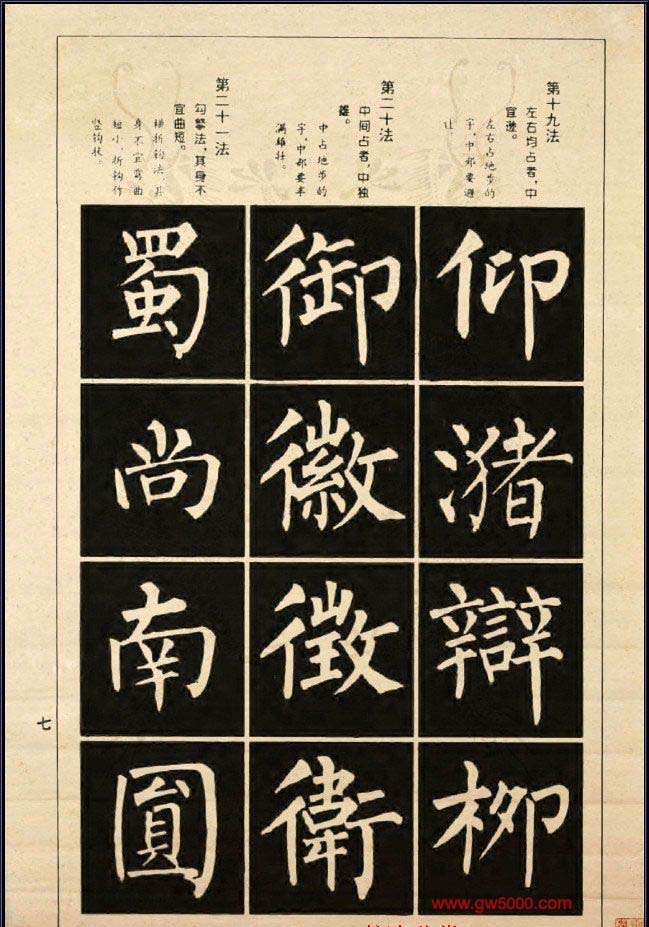 第十九法
左右均占者，中
宜逊。
左右占地步的
字，中部要避
让。
仰
潴
辯
柳
第二十法
中间占者，中独
雄。
中占地步的
字，中部要丰
满雄壮。
御
徽
徴
衛
第二十一法
勾擎法，其身不
宜曲短。
横折钩法，其
身不宜弯曲
短小，折钩作
竖钩状。
蜀
尚
南
圓
七
www.gw5000.com